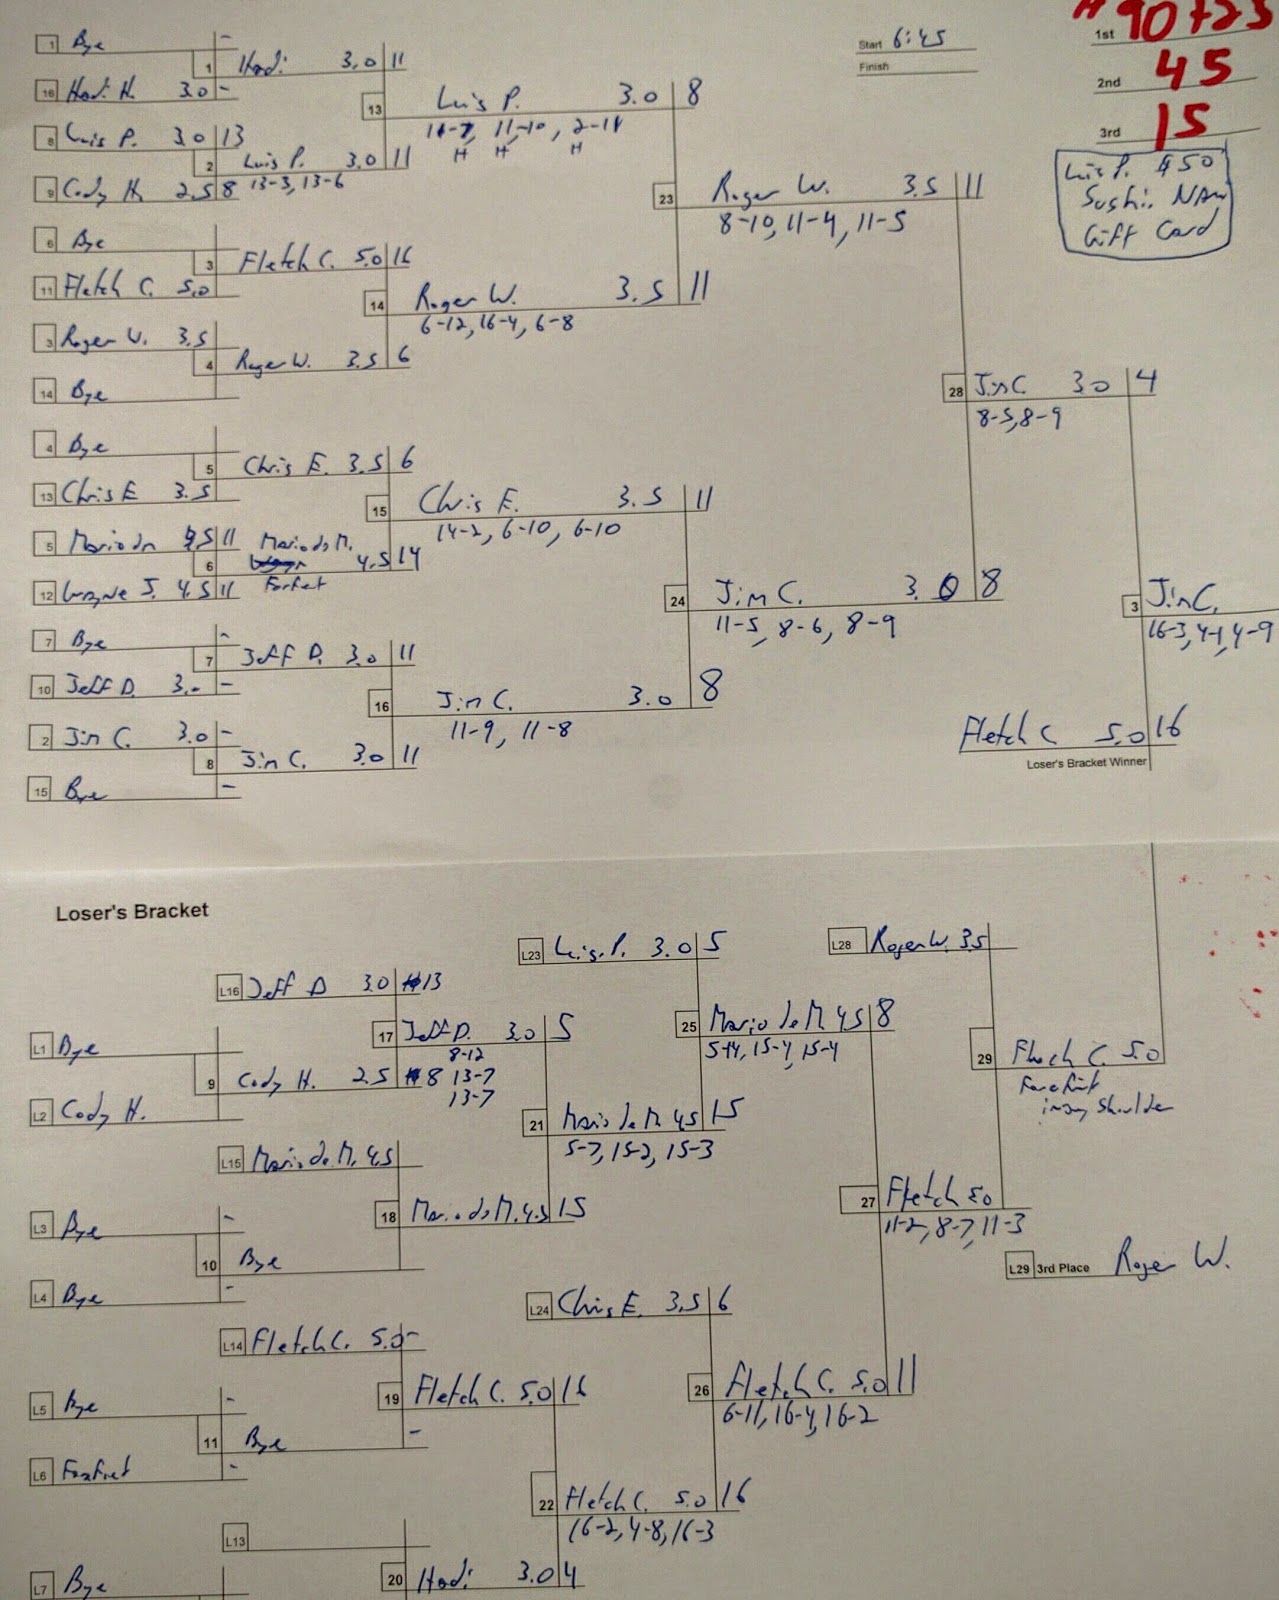 1 Bye -
1 Hadi 3.0 11
16 Hadi H. 3.0 -
13 Luis P. 3.0 8
11-7, 11-10, 2-11
H H H
8 Luis P. 3.0 13
2 Luis P. 3.0 11
13-3, 13-6
9 Cody H. 2.5 8
23 Roger W. 3.5 11
8-10, 11-4, 11-5
6 Bye
3 Fletch C. 5.0 16
11 Fletch C. 5.0
14 Roger W. 3.5 11
6-12, 16-4, 6-8
3 Roger W. 3.5
4 Roger W. 3.5 6
14 Bye
28 Jim C. 3.0 4
8-5, 8-9
4 Bye
5 Chris E. 3.5 6
13 Chris E 3.5
15 Chris E. 3.5 11
14-2, 6-10, 6-10
5 Mario dm 4.5 11
6 Mario do M. 4.5 14
Forfet
12 Wayne J. 4.5 11
24 Jim C. 3.0 8
11-5, 8-6, 8-9
3 Jim C.
16-3, 4-1, 4-9
7 Bye -
7 Jeff D. 3.0 11
10 Jeff D. 3.- -
16 Jim C. 3.0 8
11-9, 11-8
2 Jim C. 3.0 -
8 Jim C. 3.0 11
15 Bye -
Fletch C 5.0 16
Loser's Bracket Winner
Start 6:45
Finish
1st 90+25
2nd 45
3rd 15
Luis P. $50
Sushi
Gift Card
Loser's Bracket
L23 Luis P. 3.0 5
L28 Roger W. 3.5
L16 Jeff D 3.0 13
17 Jeff D. 3.0 5
8-12
13-7
13-7
25 Mario de M. 4.5 8
5-14, 15-4, 15-4
L1 Bye
9 Cody H. 2.5 8
L2 Cody H.
29 Fletch C. 5.0
Forefit
injury Shoulder
21 Mario de M 4.5 15
5-7, 15-2, 15-3
L15 Mario de M. 4.5
18 Mario do M. 4.5 15
27 Fletch 5.0
11-2, 8-7, 11-3
L3 Bye -
10 Bye
L4 Bye -
L29 3rd Place Roger W.
L24 Chris E. 3.5 6
L14 Fletch C. 5.0 -
19 Fletch C. 5.0 16
26 Fletch C. 5.0 11
6-11, 16-4, 16-2
L5 Bye -
11 Bye -
L6 Forfiet -
22 Fletch C. 5.0 16
16-2, 4-8, 16-3
L13
20 Hadi 3.0 4
L7 Bye